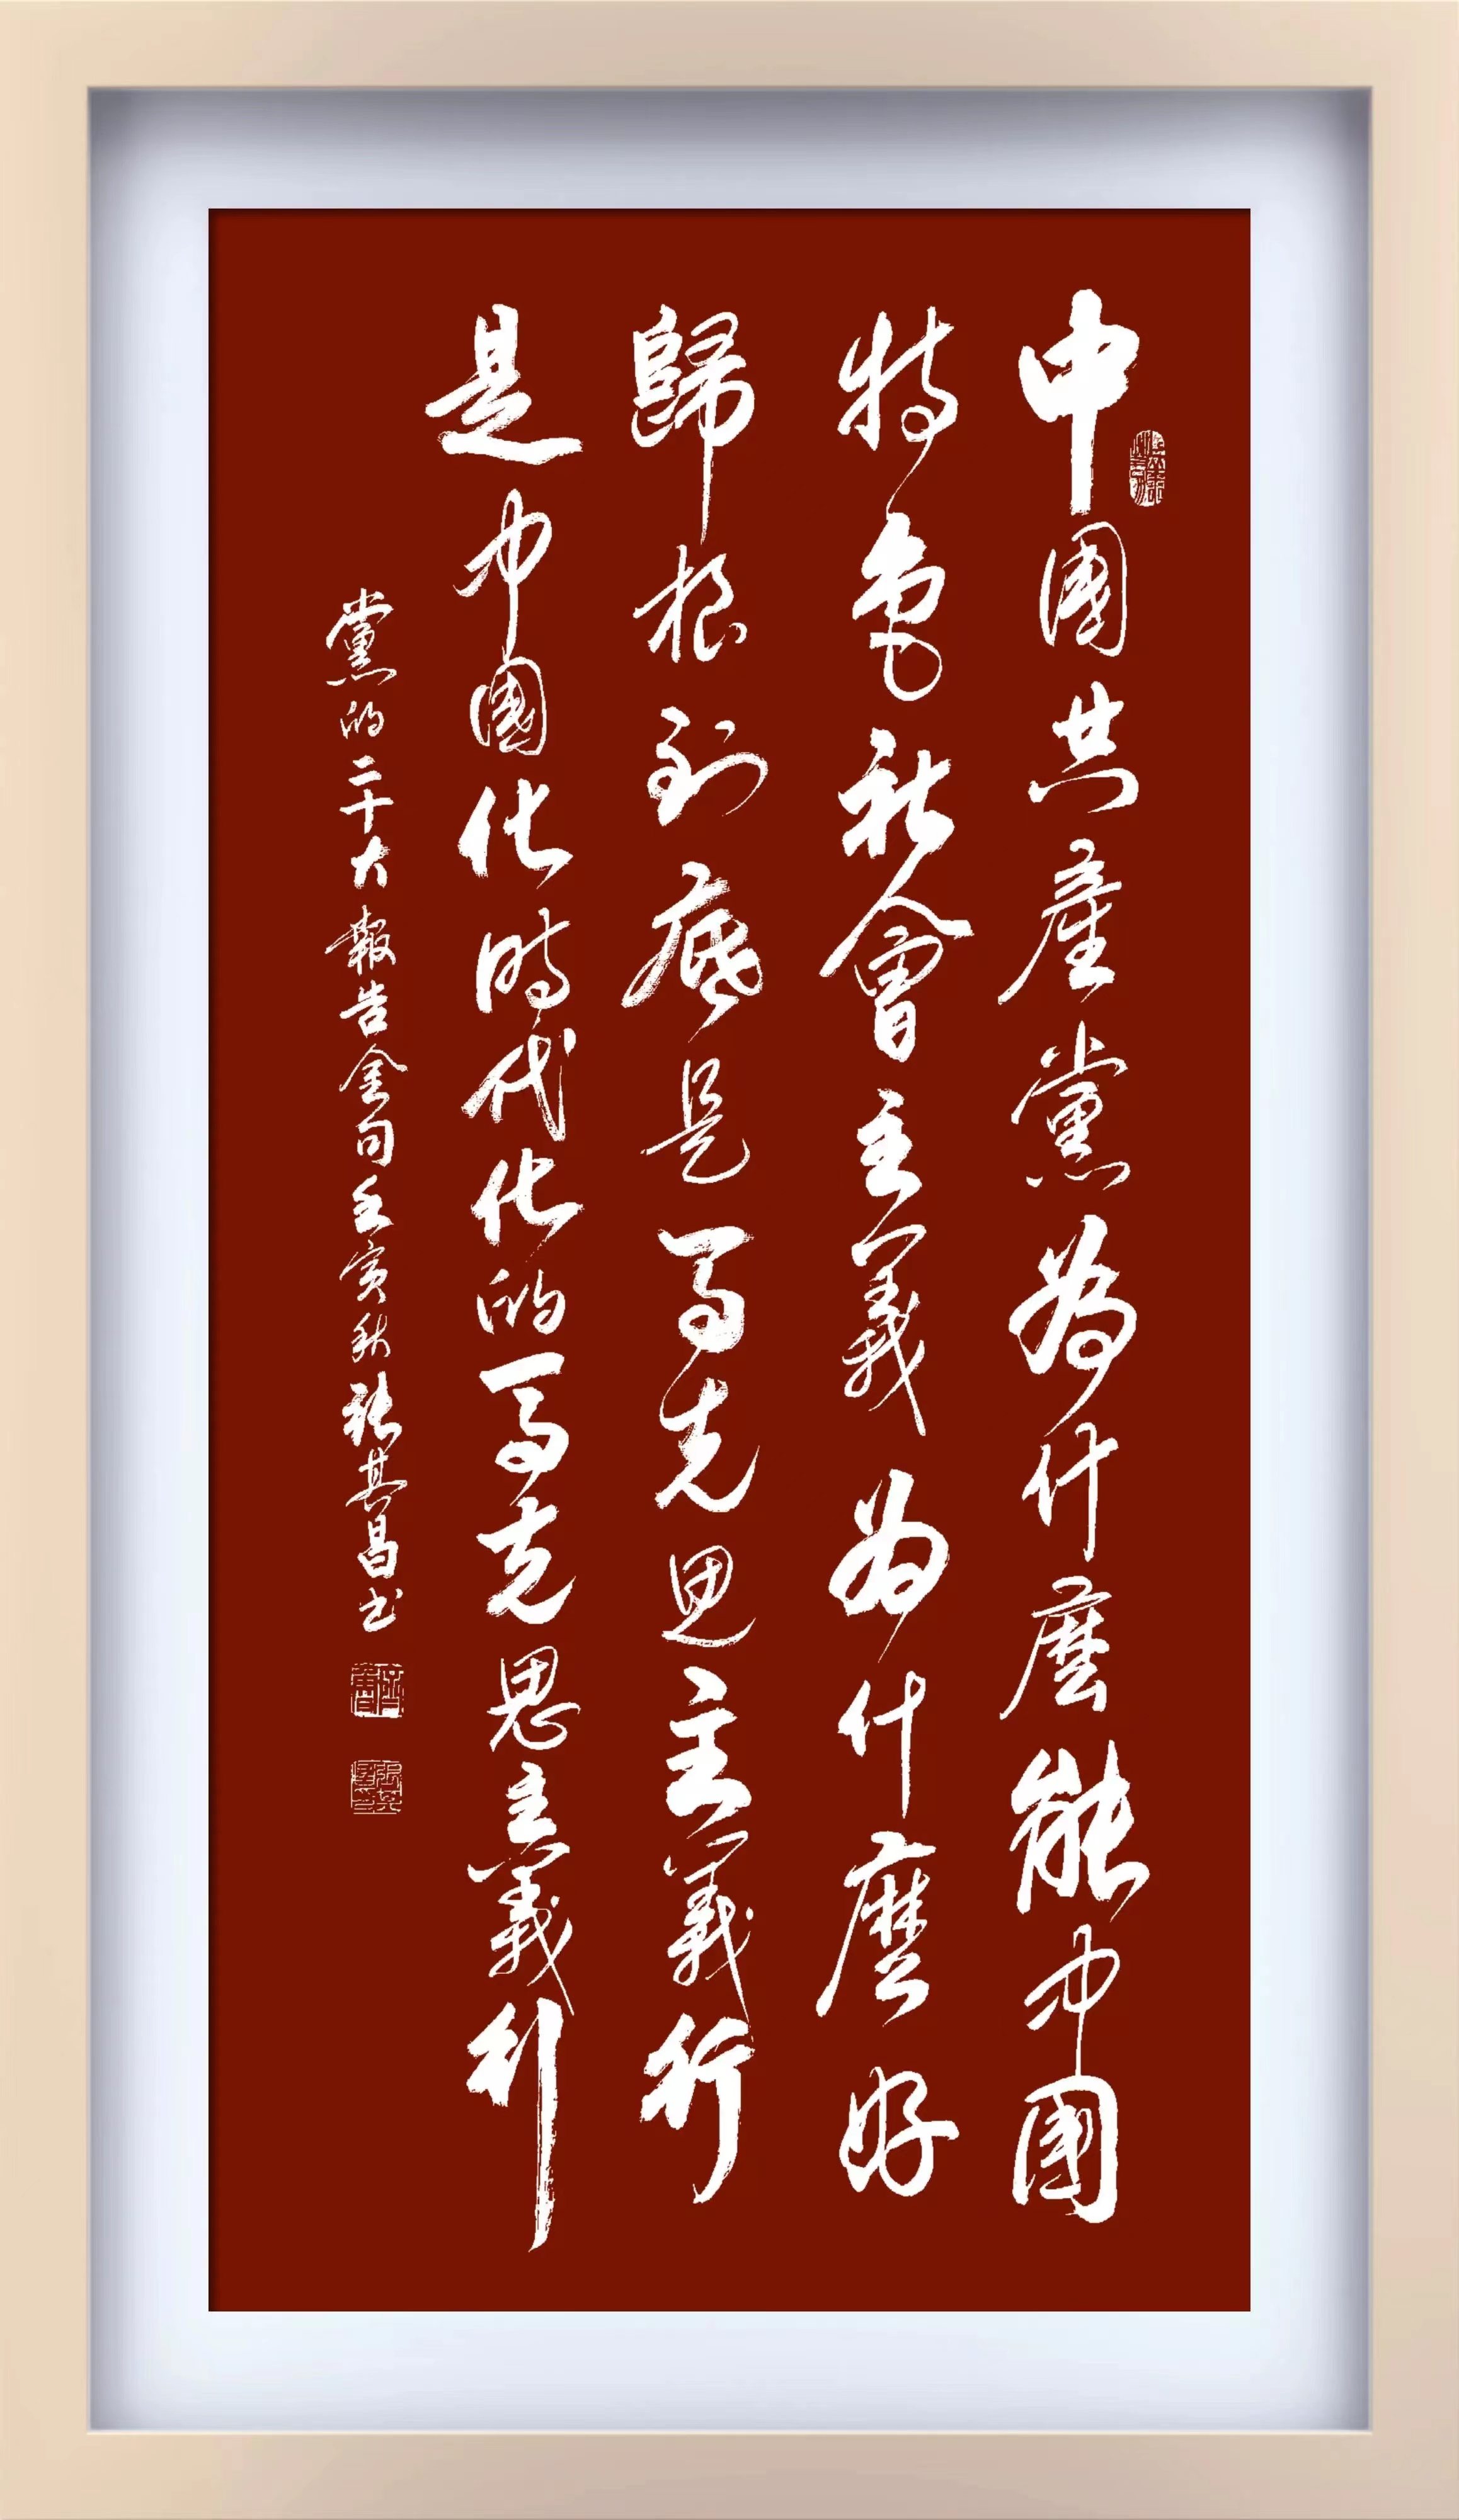 中國共產黨為什麼能中國
特色社會主義為什麼好
歸根到底是马克思主義行
是中國化时代化的马克思主義行
黨的二十大報告金句壬寅秋張其昌书